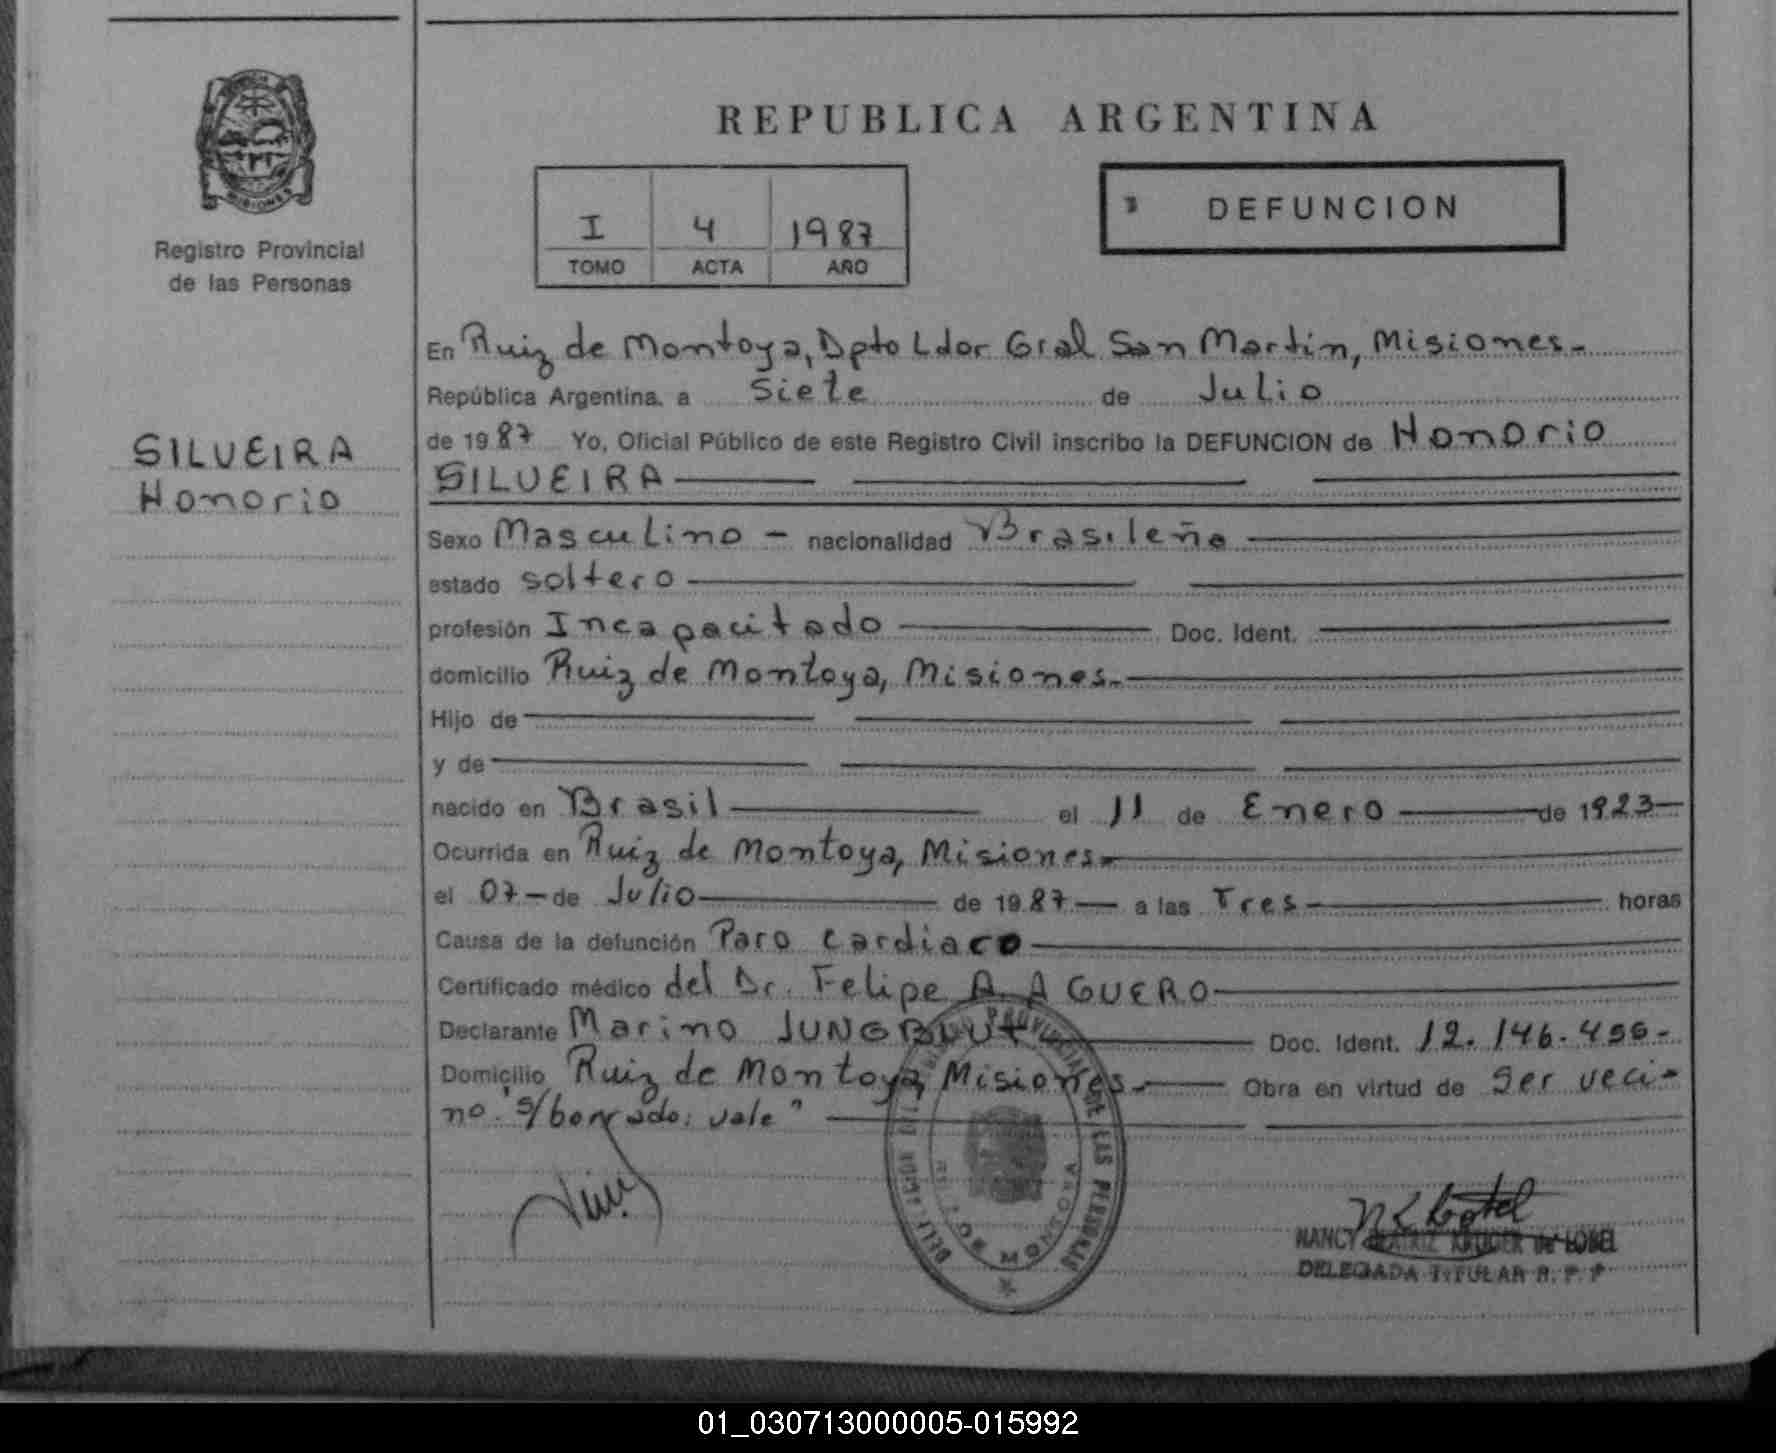 REPUBLICA ARGENTINA
MISIONES
Registro Provincial
de las Personas
I 4 1987
TOMO ACTA AÑO
DEFUNCION
SILVEIRA
Honorio
En Ruiz de Montoya, Dpto Ldor Gral San Martín, Misiones-
República Argentina, a Siete de Julio
de 1987 Yo, Oficial Público de este Registro Civil inscribo la DEFUNCION de Honorio
SILVEIRA
Sexo Masculino - nacionalidad Brasileña
estado soltero
profesión Incapacitado Doc. Ident.
domicilio Ruiz de Montoya, Misiones.-
Hijo de
y de
nacido en Brasil el 11 de Enero de 1923
Ocurrida en Ruiz de Montoya, Misiones-
el 07 - de Julio de 1987 a las Tres horas
Causa de la defunción Paro cardiaco
Certificado médico del Dr. Felipe A. AGUERO
Declarante Marino JUNGBLUT Doc. Ident. 12.146.
Domicilio Ruiz de Montoya, Misiones.- Obra en virtud de ser veci-
no. "s/borrado: vale"
DE MONTOYA
NANCY BEATRIZ KRUGER de LOBEL
DELEGADA TITULAR R. P. P
01_030713000005-015992